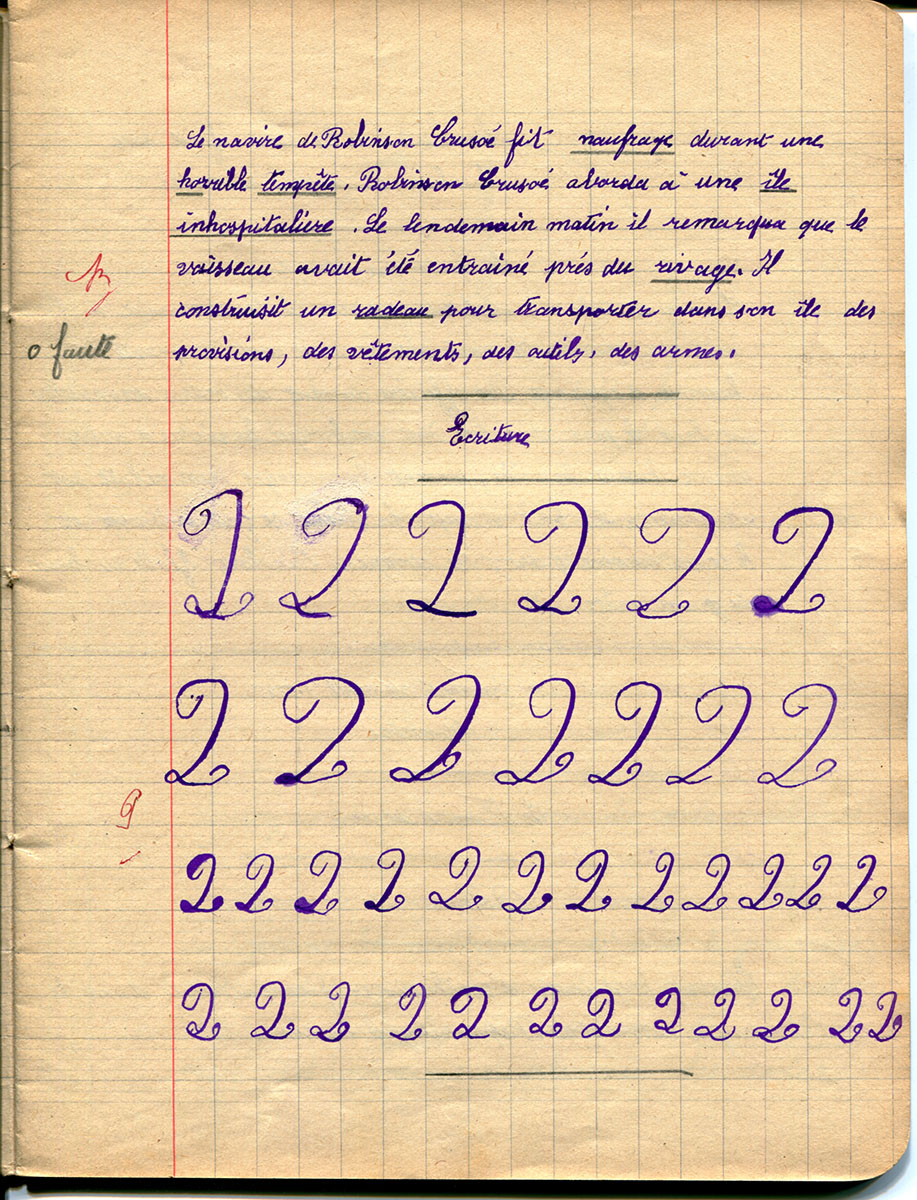 Le navire de Robinson Crusoé fit naufrage durant une
horrible tempête. Robinson Crusoé aborda à une île
inhospitalière. Le lendemain matin il remarqua que le
vaisseau avait été entraîné prés du rivage. Il
construisit un radeau pour transporter dans son île des
0 faute
provisions, des vêtements, des outils, des armes.
Ecriture
2 2 2 2 2 2
2 2 2 2 2 2 2
2 2 2 2 2 2 2 2 2 2 2 2
2 2 2 2 2 2 2 2 2 2 2 2